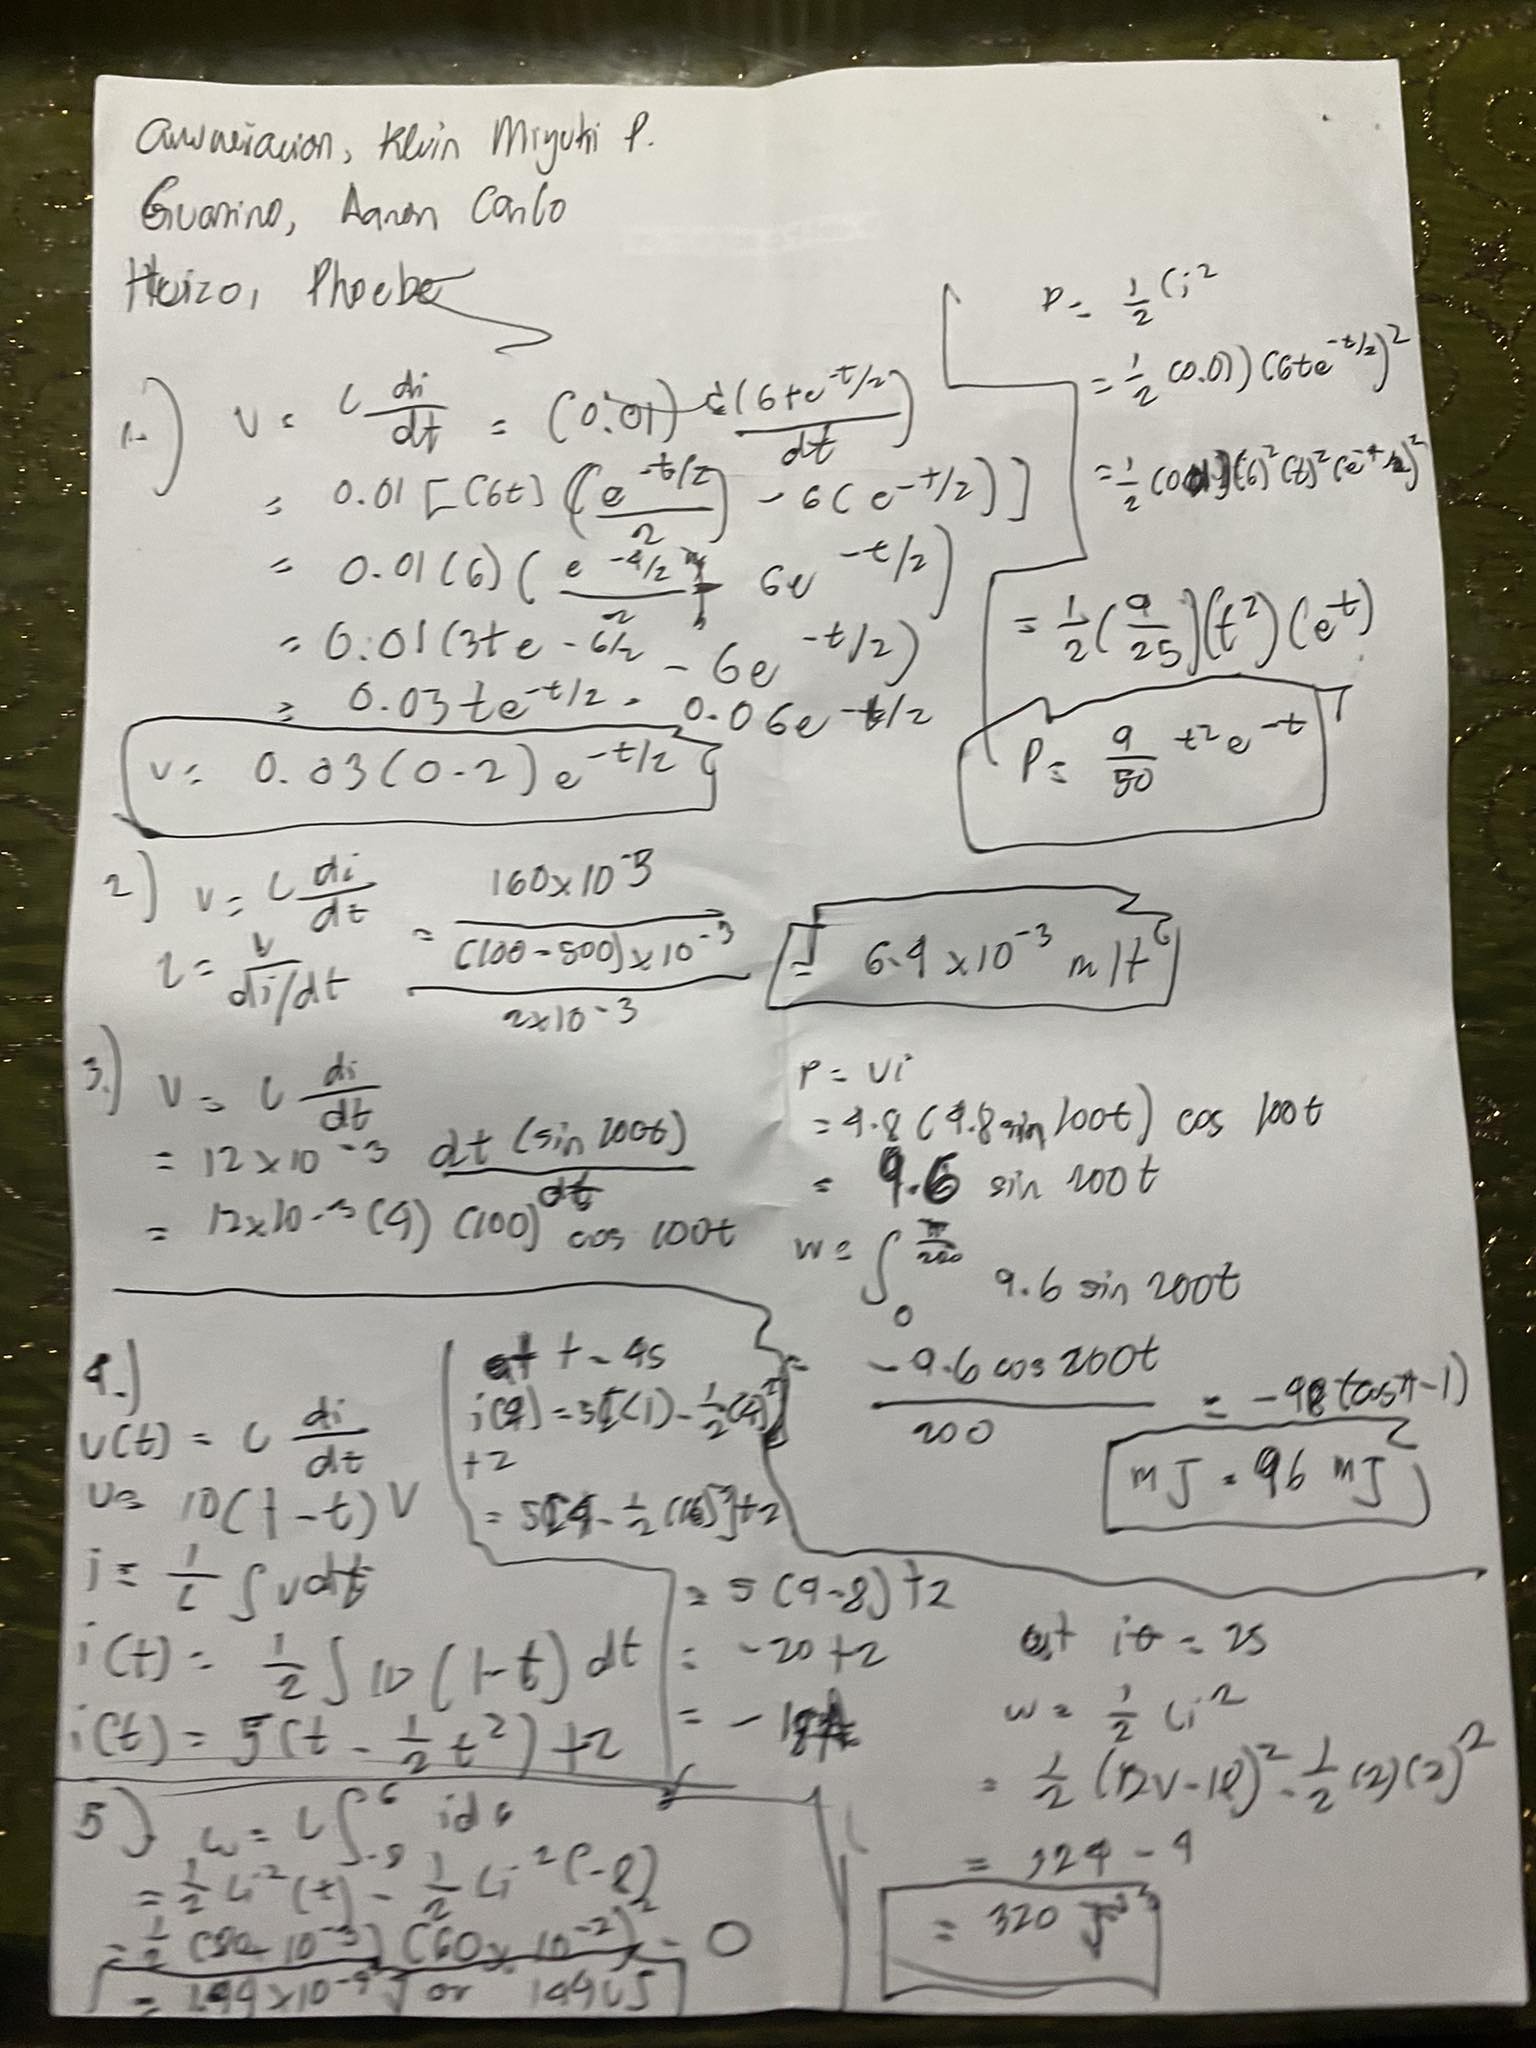 Guarino, Aaron Carlo
Phoebe
1.) v = L di/dt = (0.01) d(6te^-t/2)/dt
= 0.01 [(6t) (e^-t/2 / 2) - 6(e^-t/2)]
= 0.01(6) (e^-t/2 / 2 - 6e^-t/2)
= 0.01(3te^-t/2 - 6e^-t/2)
= 0.03te^-t/2 - 0.06e^-t/2
v = 0.03(0-2)e^-t/2
P = 1/2 Li^2
= 1/2 (0.01)(6te^-t/2)^2
= 1/2 (0.01)(6)^2 (t)^2 (e^-t/2)^2
= 1/2 (9/25)(t^2)(e^-t)
P = 9/50 t^2 e^-t
2) v = L di/dt
L = v / di/dt = 160x10^-3 / (100-500)x10^-3 / 2x10^-3
= 6.4 x10^-3 mH
3.) v = L di/dt
= 12x10^-3 dt (sin 100t) / dt
= 12x10^-3 (4) (100) cos 100t
P = vi
= 4.8 (4.8 sin 100t) cos 100t
= 9.6 sin 200t
w = ∫ 0 π/200 9.6 sin 200t
= -9.6 cos 200t / 200 = -48 (cos π - 1)
mJ = 96 mJ
4.)
v(t) = L di/dt
v = 10(1-t) V
i = 1/L ∫ v dt
i(t) = 1/2 ∫ 10 (1-t) dt
i(t) = 5(t - 1/2 t^2) + 2
at t = 4s
+2
= 5[4 - 1/2 (16)] + 2
= 5(4-8) + 2
= -20 + 2
= -18A
at = 2s
w = 1/2 Li^2
- 1/2 (2)(2)^2
= 324 - 4
= 320 J
5) w = L ∫ -8
= 1/2 Li^2 (t) - 1/2 Li^2 (-8)
(60x10^-2)^2 - 0
= 144x10^-4 J or 144 uJ